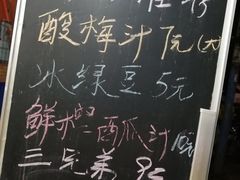 酸梅汁 7元(大)
冰綠豆 5元
鲜榨 西瓜汁
三兄弟